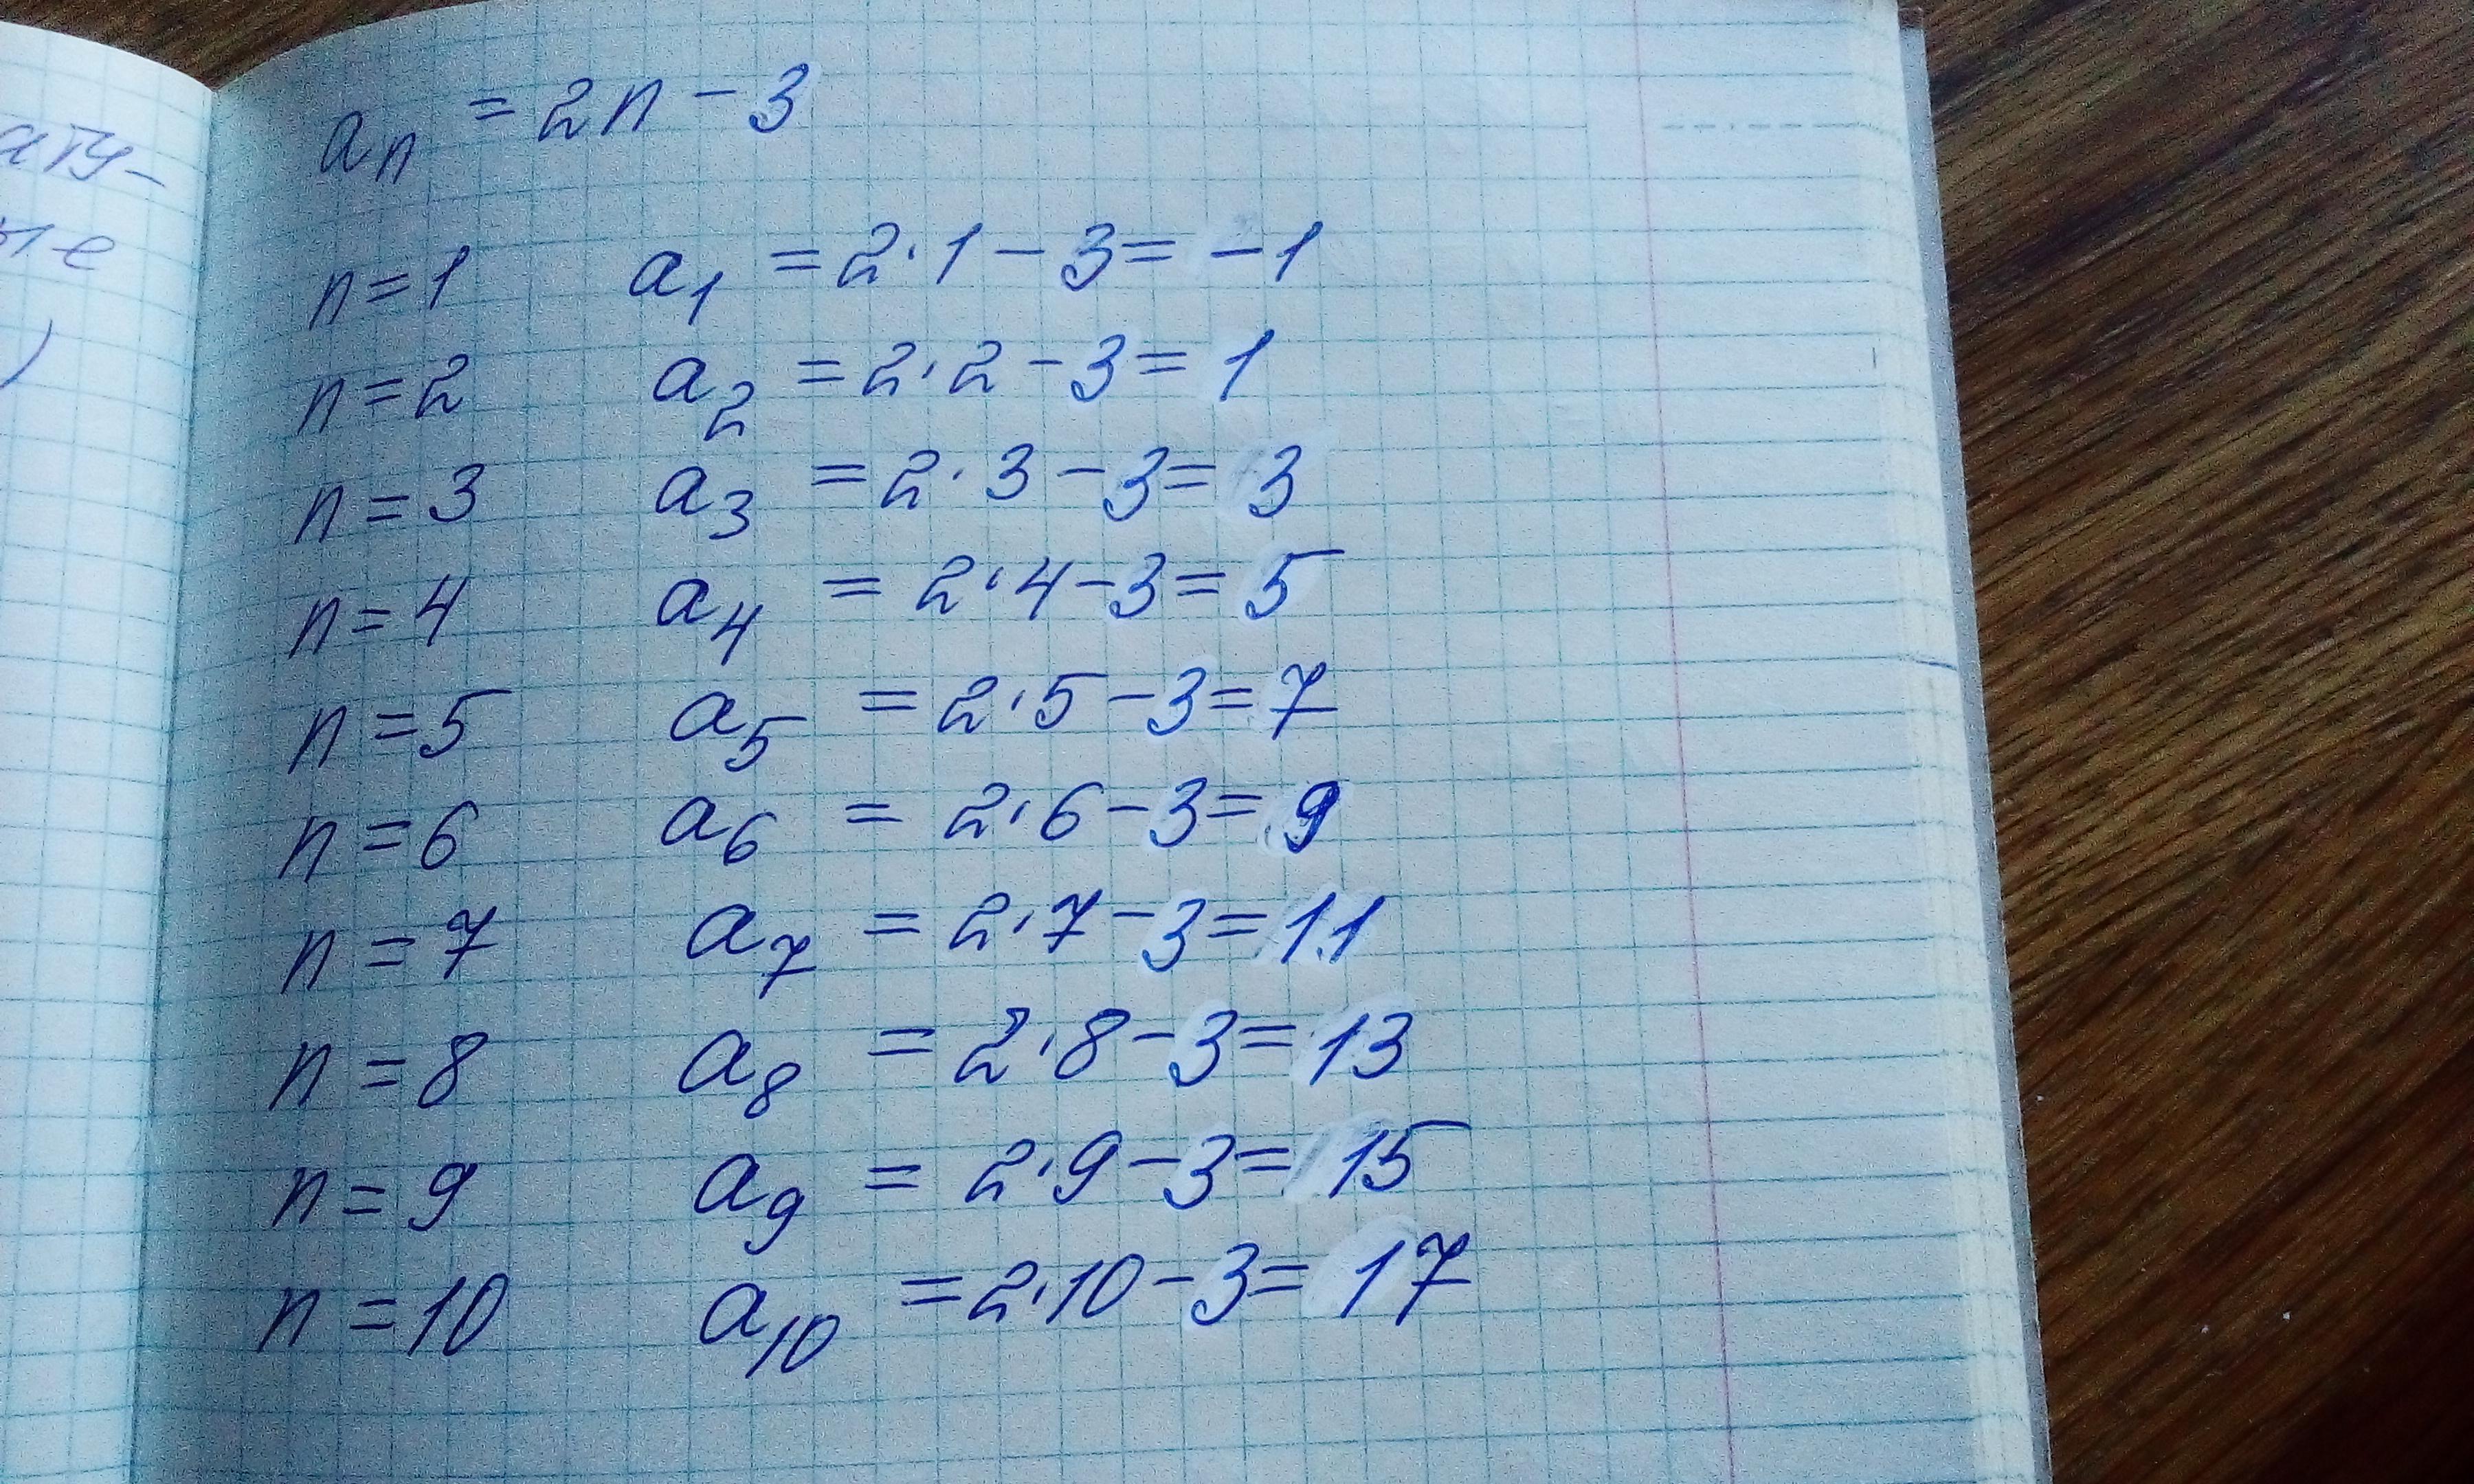 aₙ = 2n - 3
n = 1 a₁ = 2·1 - 3 = -1
n = 2 a₂ = 2·2 - 3 = 1
n = 3 a₃ = 2·3 - 3 = 3
n = 4 a₄ = 2·4 - 3 = 5
n = 5 a₅ = 2·5 - 3 = 7
n = 6 a₆ = 2·6 - 3 = 9
n = 7 a₇ = 2·7 - 3 = 11
n = 8 a₈ = 2·8 - 3 = 13
n = 9 a₉ = 2·9 - 3 = 15
n = 10 a₁₀ = 2·10 - 3 = 17